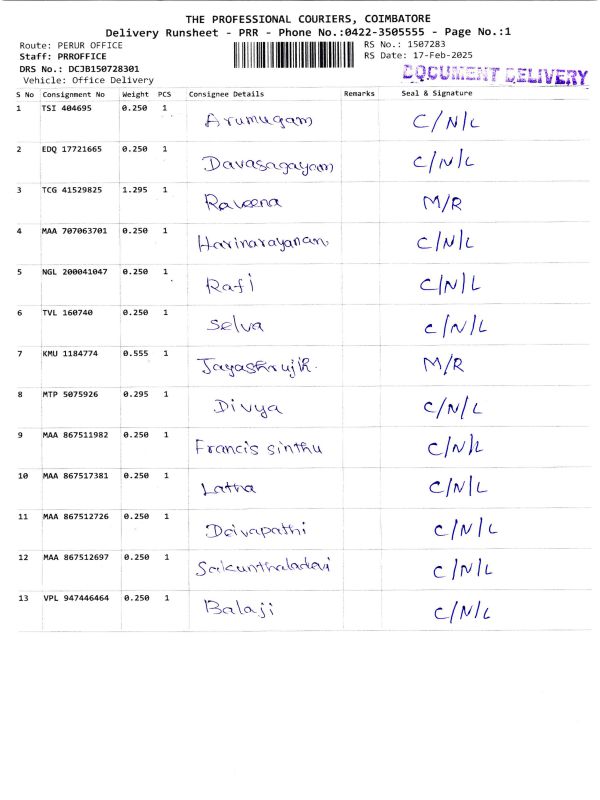 THE PROFESSIONAL COURIERS, COIMBATORE
Delivery Runsheet - PRR - Phone No.:0422-3505555 - Page No.:1
Route: PERUR OFFICE RS No.: 1507283
Staff: PRROFFICE RS Date: 17-Feb-2025
DRS No.: DCJB150728301 DOCUMENT DELIVERY
Vehicle: Office Delivery
S No Consignment No Weight PCS Consignee Details Remarks Seal & Signature
1 TSI 404695 0.250 1 Arumugam C/N/L
2 EDQ 17721665 0.250 1 Davasagayam C/N/L
3 TCG 41529825 1.295 1 Raveena M/R
4 MAA 707063701 0.250 1 Harinarayanan C/N/L
5 NGL 200041047 0.250 1 Rafi C/N/L
6 TVL 160740 0.250 1 Selva C/N/L
7 KMU 1184774 0.555 1 M/R
8 MTP 5075926 0.295 1 Divya C/N/L
9 MAA 867511982 0.250 1 Francis sinthu C/N/L
10 MAA 867517381 0.250 1 Latha C/N/L
11 MAA 867512726 0.250 1 Deivapathi C/N/L
12 MAA 867512697 0.250 1 Sakunthaladevi C/N/L
13 VPL 947446464 0.250 1 Balaji C/N/L